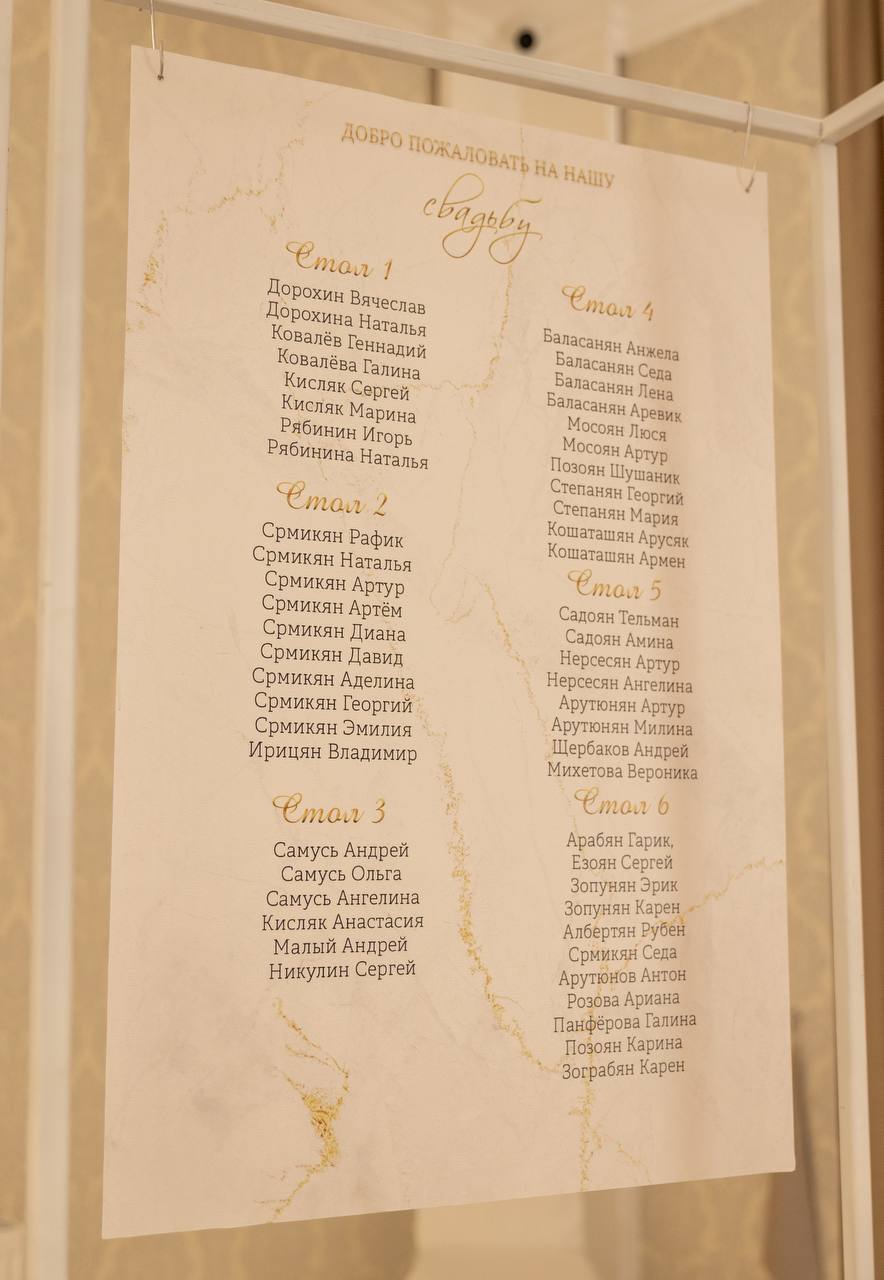 ДОБРО ПОЖАЛОВАТЬ НА НАШУ
свадьбу
Стол 1
Дорохин Вячеслав
Дорохина Наталья
Ковалёв Геннадий
Ковалёва Галина
Кисляк Сергей
Кисляк Марина
Рябинин Игорь
Рябинина Наталья
Стол 2
Срмикян Рафик
Срмикян Наталья
Срмикян Артур
Срмикян Артём
Срмикян Диана
Срмикян Давид
Срмикян Аделина
Срмикян Георгий
Срмикян Эмилия
Ирицян Владимир
Стол 3
Самусь Андрей
Самусь Ольга
Самусь Ангелина
Кисляк Анастасия
Малый Андрей
Никулин Сергей
Стол 4
Баласанян Анжела
Баласанян Седа
Баласанян Лена
Баласанян Аревик
Мосоян Люся
Мосоян Артур
Позоян Шушаник
Степанян Георгий
Степанян Мария
Кошаташян Арусяк
Кошаташян Армен
Стол 5
Садоян Тельман
Садоян Амина
Нерсесян Артур
Нерсесян Ангелина
Арутюнян Артур
Арутюнян Милина
Щербаков Андрей
Михетова Вероника
Стол 6
Арабян Гарик,
Езоян Сергей
Зопунян Эрик
Зопунян Карен
Албертян Рубен
Срмикян Седа
Арутюнов Антон
Розова Ариана
Панфёрова Галина
Позоян Карина
Зограбян Карен